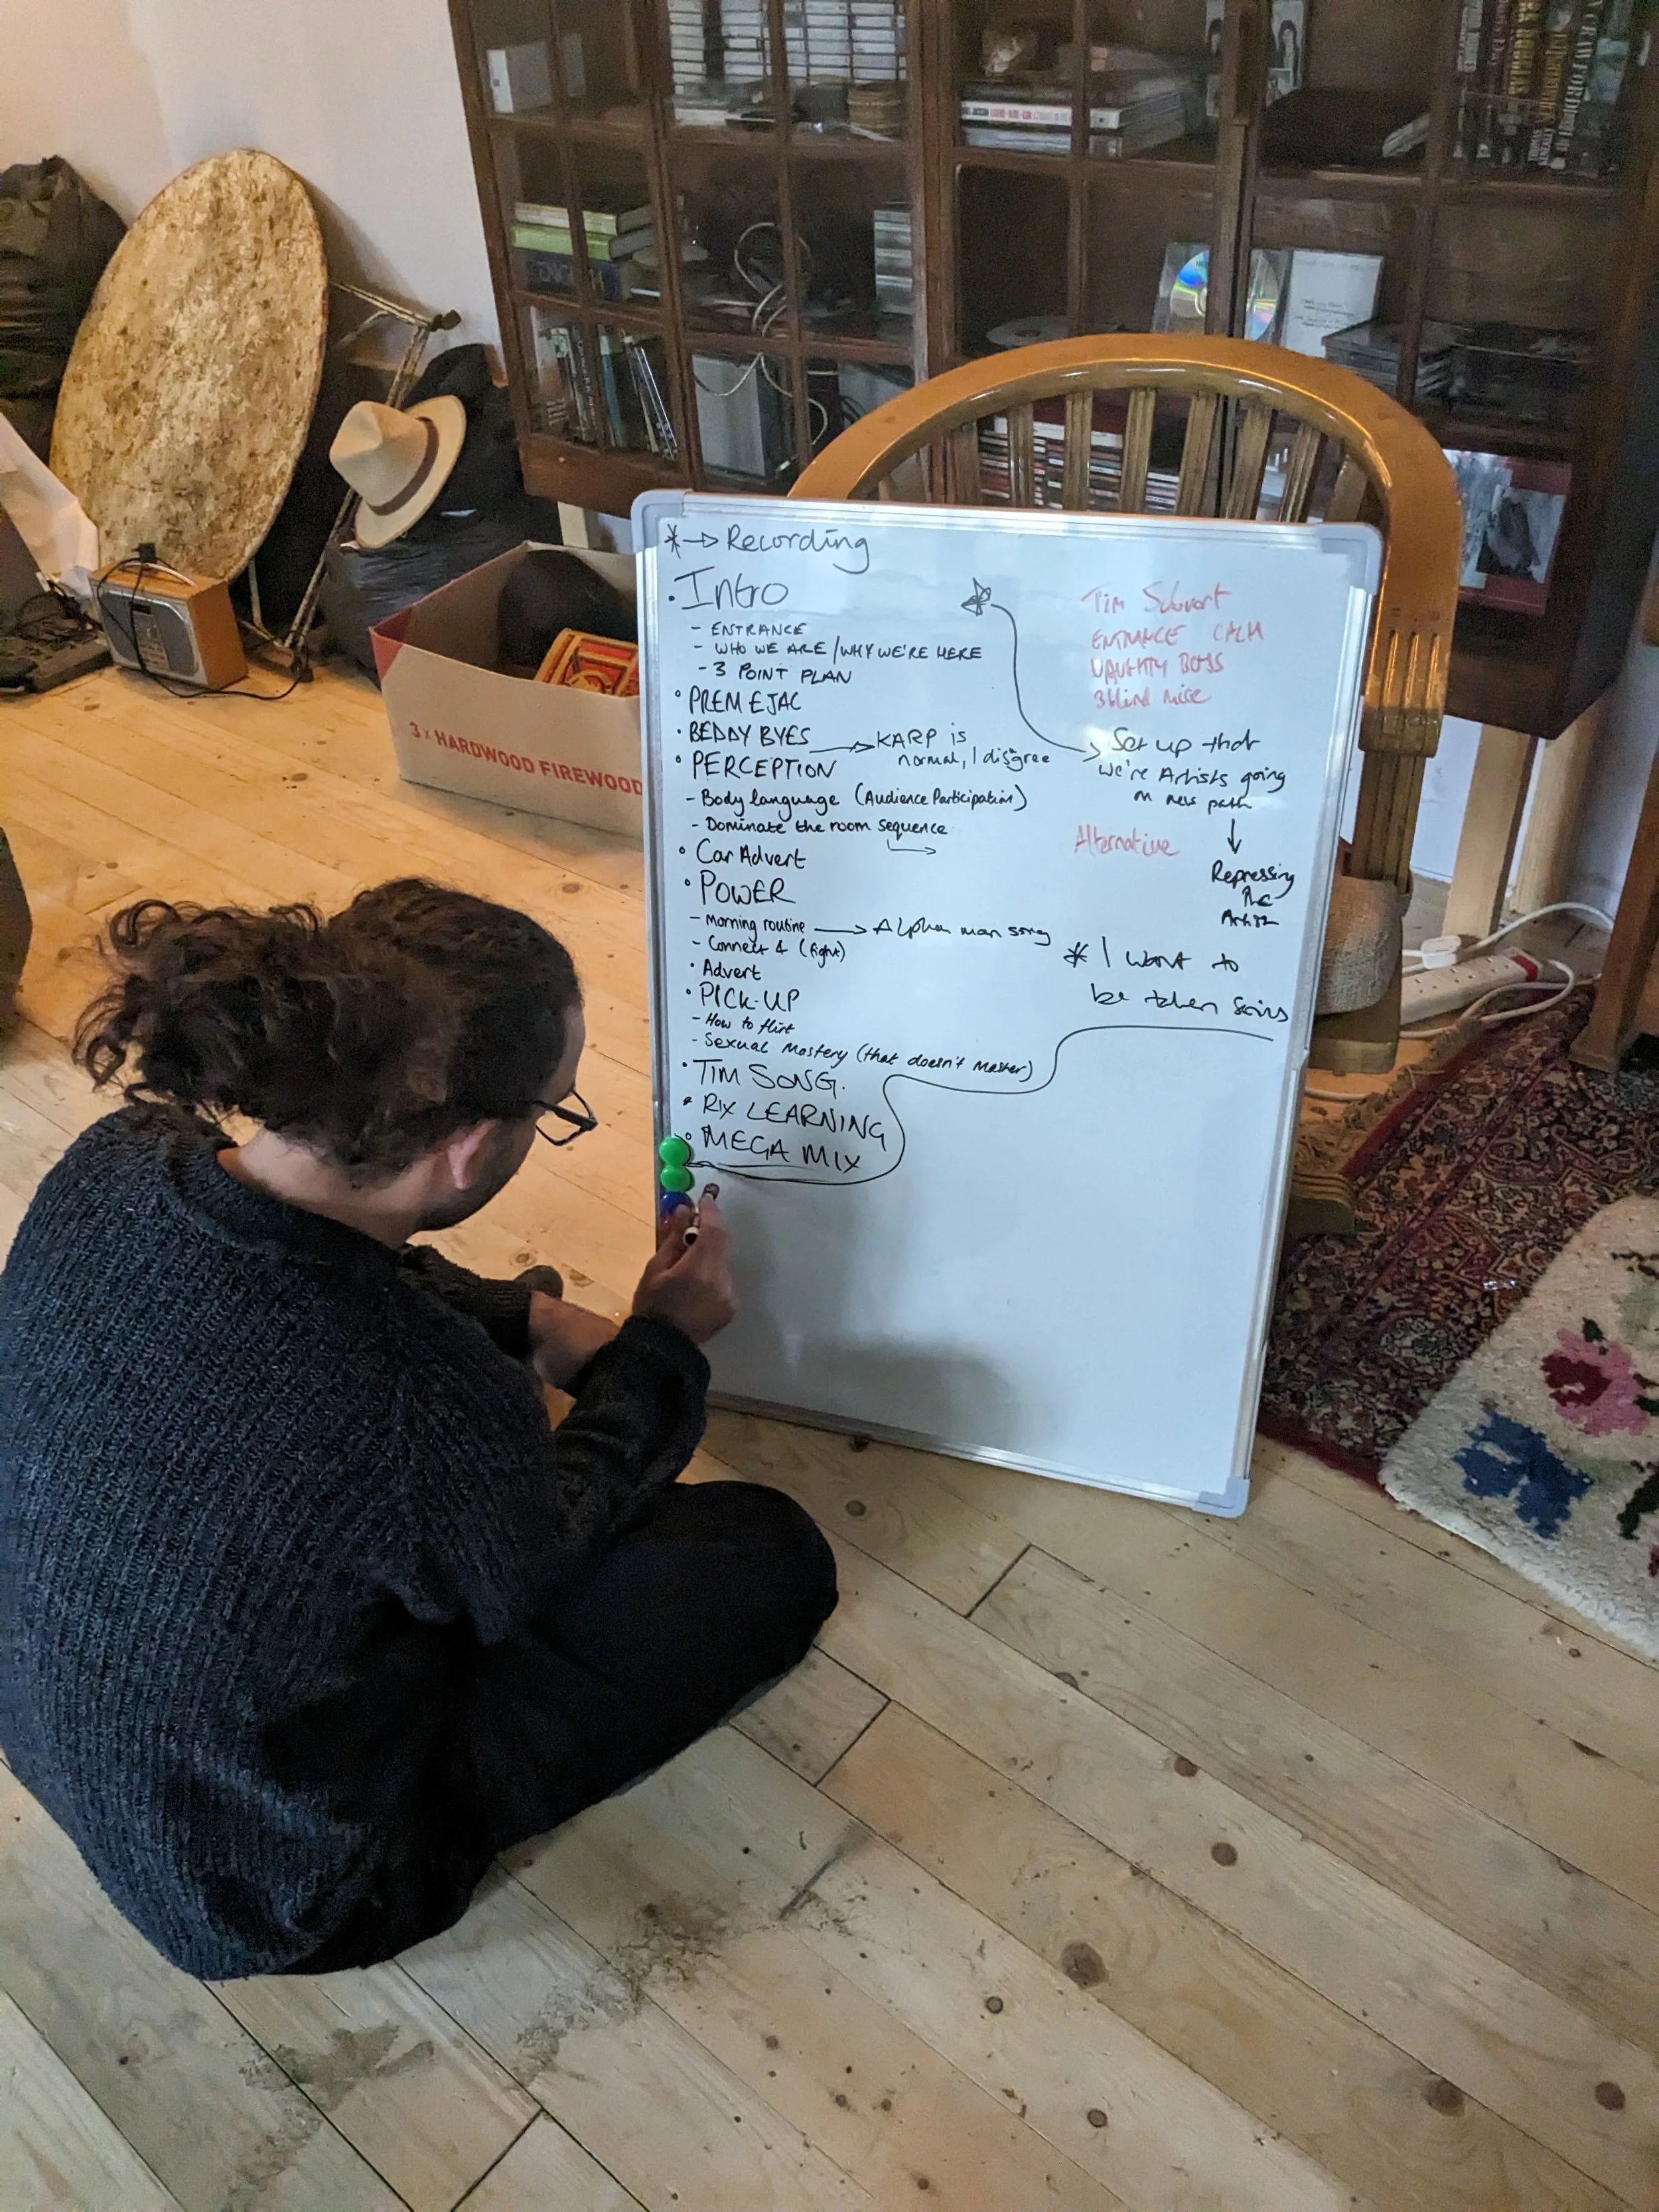 * → Recording
• Intro
- ENTRANCE
- WHO WE ARE / WHY WE'RE HERE
- 3 POINT PLAN
• PREM EJAC
• BEDDY BYES → KARP is
normal, I disgree
• PERCEPTION
- Body language (Audience Participation)
- Dominate the room sequence
• Car Advert
• POWER
- Morning routine → Alpha man song
- Connect 4 (fight)
• Advert
• PICK-UP
- How to flirt
- Sexual Mastery (that doesn't Master)
• TIM SONG.
• RIX LEARNING
• MEGA MIX
Tim
ENTRANCE CALM
NAUGHTY BOYS
3 blind mice
Set up that
we're Artists going
on new path
Alternative
Repressing
the
Artist
* I want to
be taken
3 x HARDWOOD FIREWOOD
ENGLISH